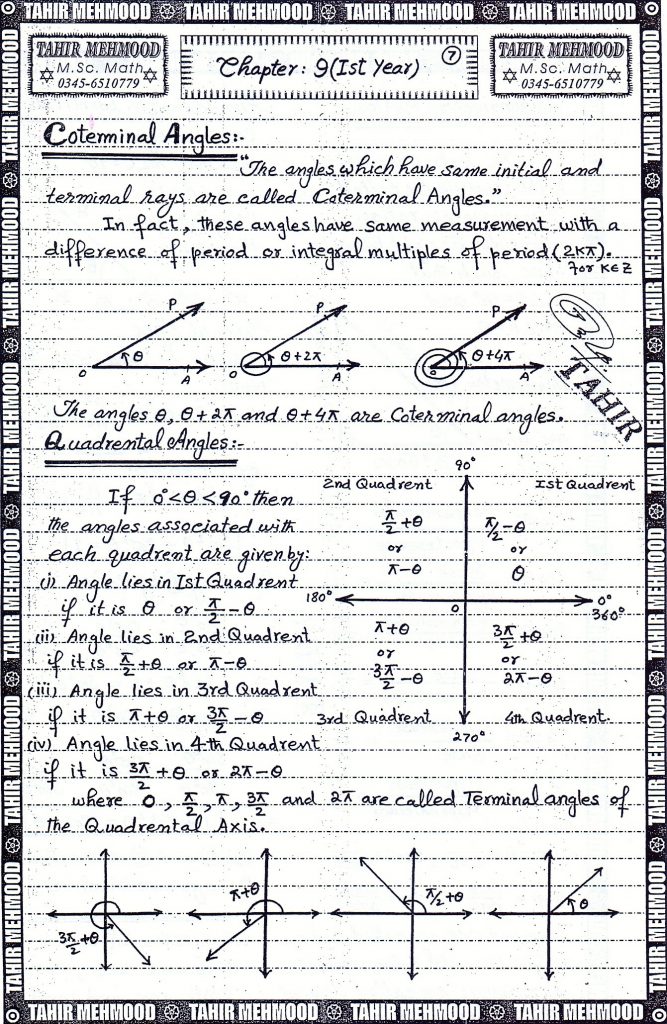 TAHIR MEHMOOD TAHIR MEHMOOD TAHIR MEHMOOD TAHIR MEHMOOD
TAHIR MEHMOOD
M.Sc. Math
0345-6510779
Chapter: 9(Ist Year)
7
TAHIR MEHMOOD
M.Sc. Math
0345-6510779
Coterminal Angles:-
"The angles which have same initial and
terminal rays are called Coterminal Angles."
In fact, these angles have same measurement with a
difference of period or integral multiples of period (2Kπ).
for K∈Z
P
θ
O
A
P
θ+2π
O
A
P
θ+4π
O
A
TAHIR
The angles θ, θ+2π and θ+4π are Coterminal angles.
Quadrental Angles:-
If 0°<θ<90° then
the angles associated with
each quadrent are given by:
(i) Angle lies in Ist Quadrent
if it is θ or π/2 - θ
(ii) Angle lies in 2nd Quadrent
if it is π/2 + θ or π-θ
(iii) Angle lies in 3rd Quadrent
if it is π+θ or 3π/2 - θ
(iv) Angle lies in 4th Quadrent
if it is 3π/2 + θ or 2π-θ
90°
2nd Quadrent
Ist Quadrent
π/2 + θ
or
π-θ
π/2 - θ
or
θ
180°
O
0°
360°
π+θ
or
3π/2 - θ
3π/2 + θ
or
2π-θ
3rd Quadrent
4th Quadrent.
270°
where 0, π/2, π, 3π/2 and 2π are called Terminal angles of
the Quadrental Axis.
3π/2 + θ
π+θ
π/2 + θ
θ
TAHIR MEHMOOD TAHIR MEHMOOD TAHIR MEHMOOD TAHIR MEHMOOD
TAHIR MEHMOOD TAHIR MEHMOOD TAHIR MEHMOOD TAHIR MEHMOOD TAHIR MEHMOOD TAHIR MEHMOOD
TAHIR MEHMOOD TAHIR MEHMOOD TAHIR MEHMOOD TAHIR MEHMOOD TAHIR MEHMOOD TAHIR MEHMOOD